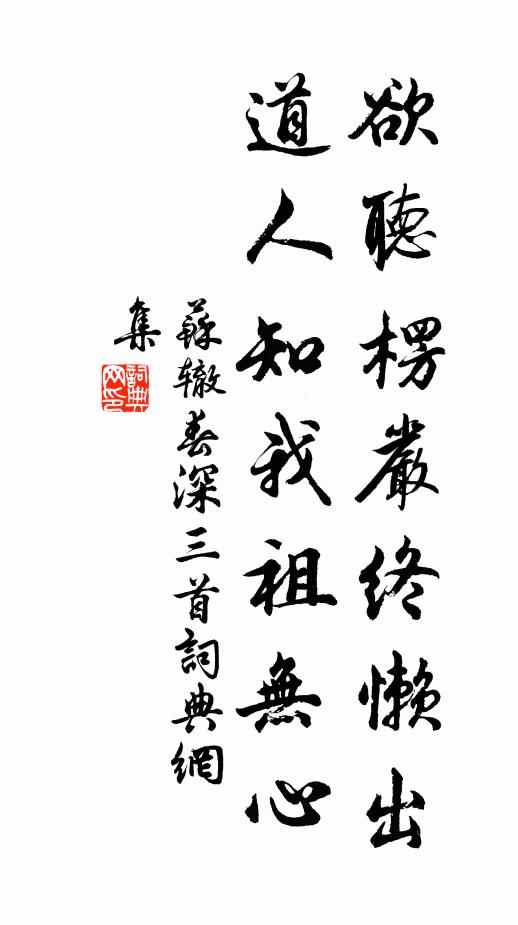 欲聽楞嚴終懶出
道人知我祖無心
蘇轍春深三首詞典網
集
詞典網印